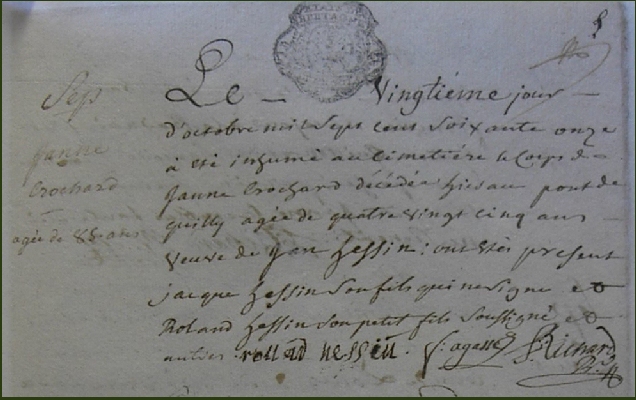 Sep
Janne
Crochard
agée de 85 ans
Le vingtiéme jour
d'octobre mil sept cent soixante onze
à été inhumé au cimetiére le corps de
Janne Crochard décédée hier au pont de
quilly agée de quatre vingt cinq ans
veuve de Jan hessin : ont étés present
jacque hessin son fils qui ne signe et
Roland hessin son petit fils soussigné et
autres